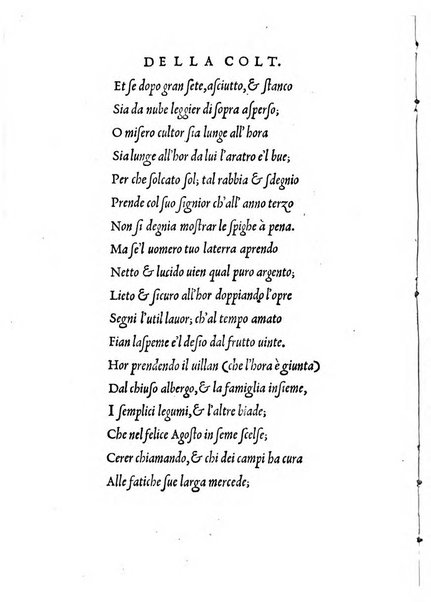 DELLA COLT.
Et ſe dopo gran ſete, aſciutto, & ſtanco
Sia da nube leggier di ſopra aſperſo;
O miſero cultor ſia lunge all'hora
Sia lunge all'hor da lui l'aratro e'l bue;
Per che ſolcato ſol; tal rabbia & ſdegnio
Prende col ſuo ſignior ch'all' anno terzo
Non ſi degnia moſtrar le ſpighe à pena.
Ma ſe'l uomero tuo laterra aprendo
Netto & lucido uien qual puro argento;
Lieto & ſicuro all'hor doppiando l'opre
Segni l'util lauor; ch'al tempo amato
Fian laſpeme e'l deſio dal frutto uinte.
Hor prendendo il uillan (che l'hora è giunta)
Dal chiuſo albergo, & la famiglia inſieme,
I ſemplici legumi, & l'altre biade;
Che nel felice Agoſto in ſeme ſcelſe;
Cerer chiamando, & chi dei campi ha cura
Alle fatiche ſue larga mercede;